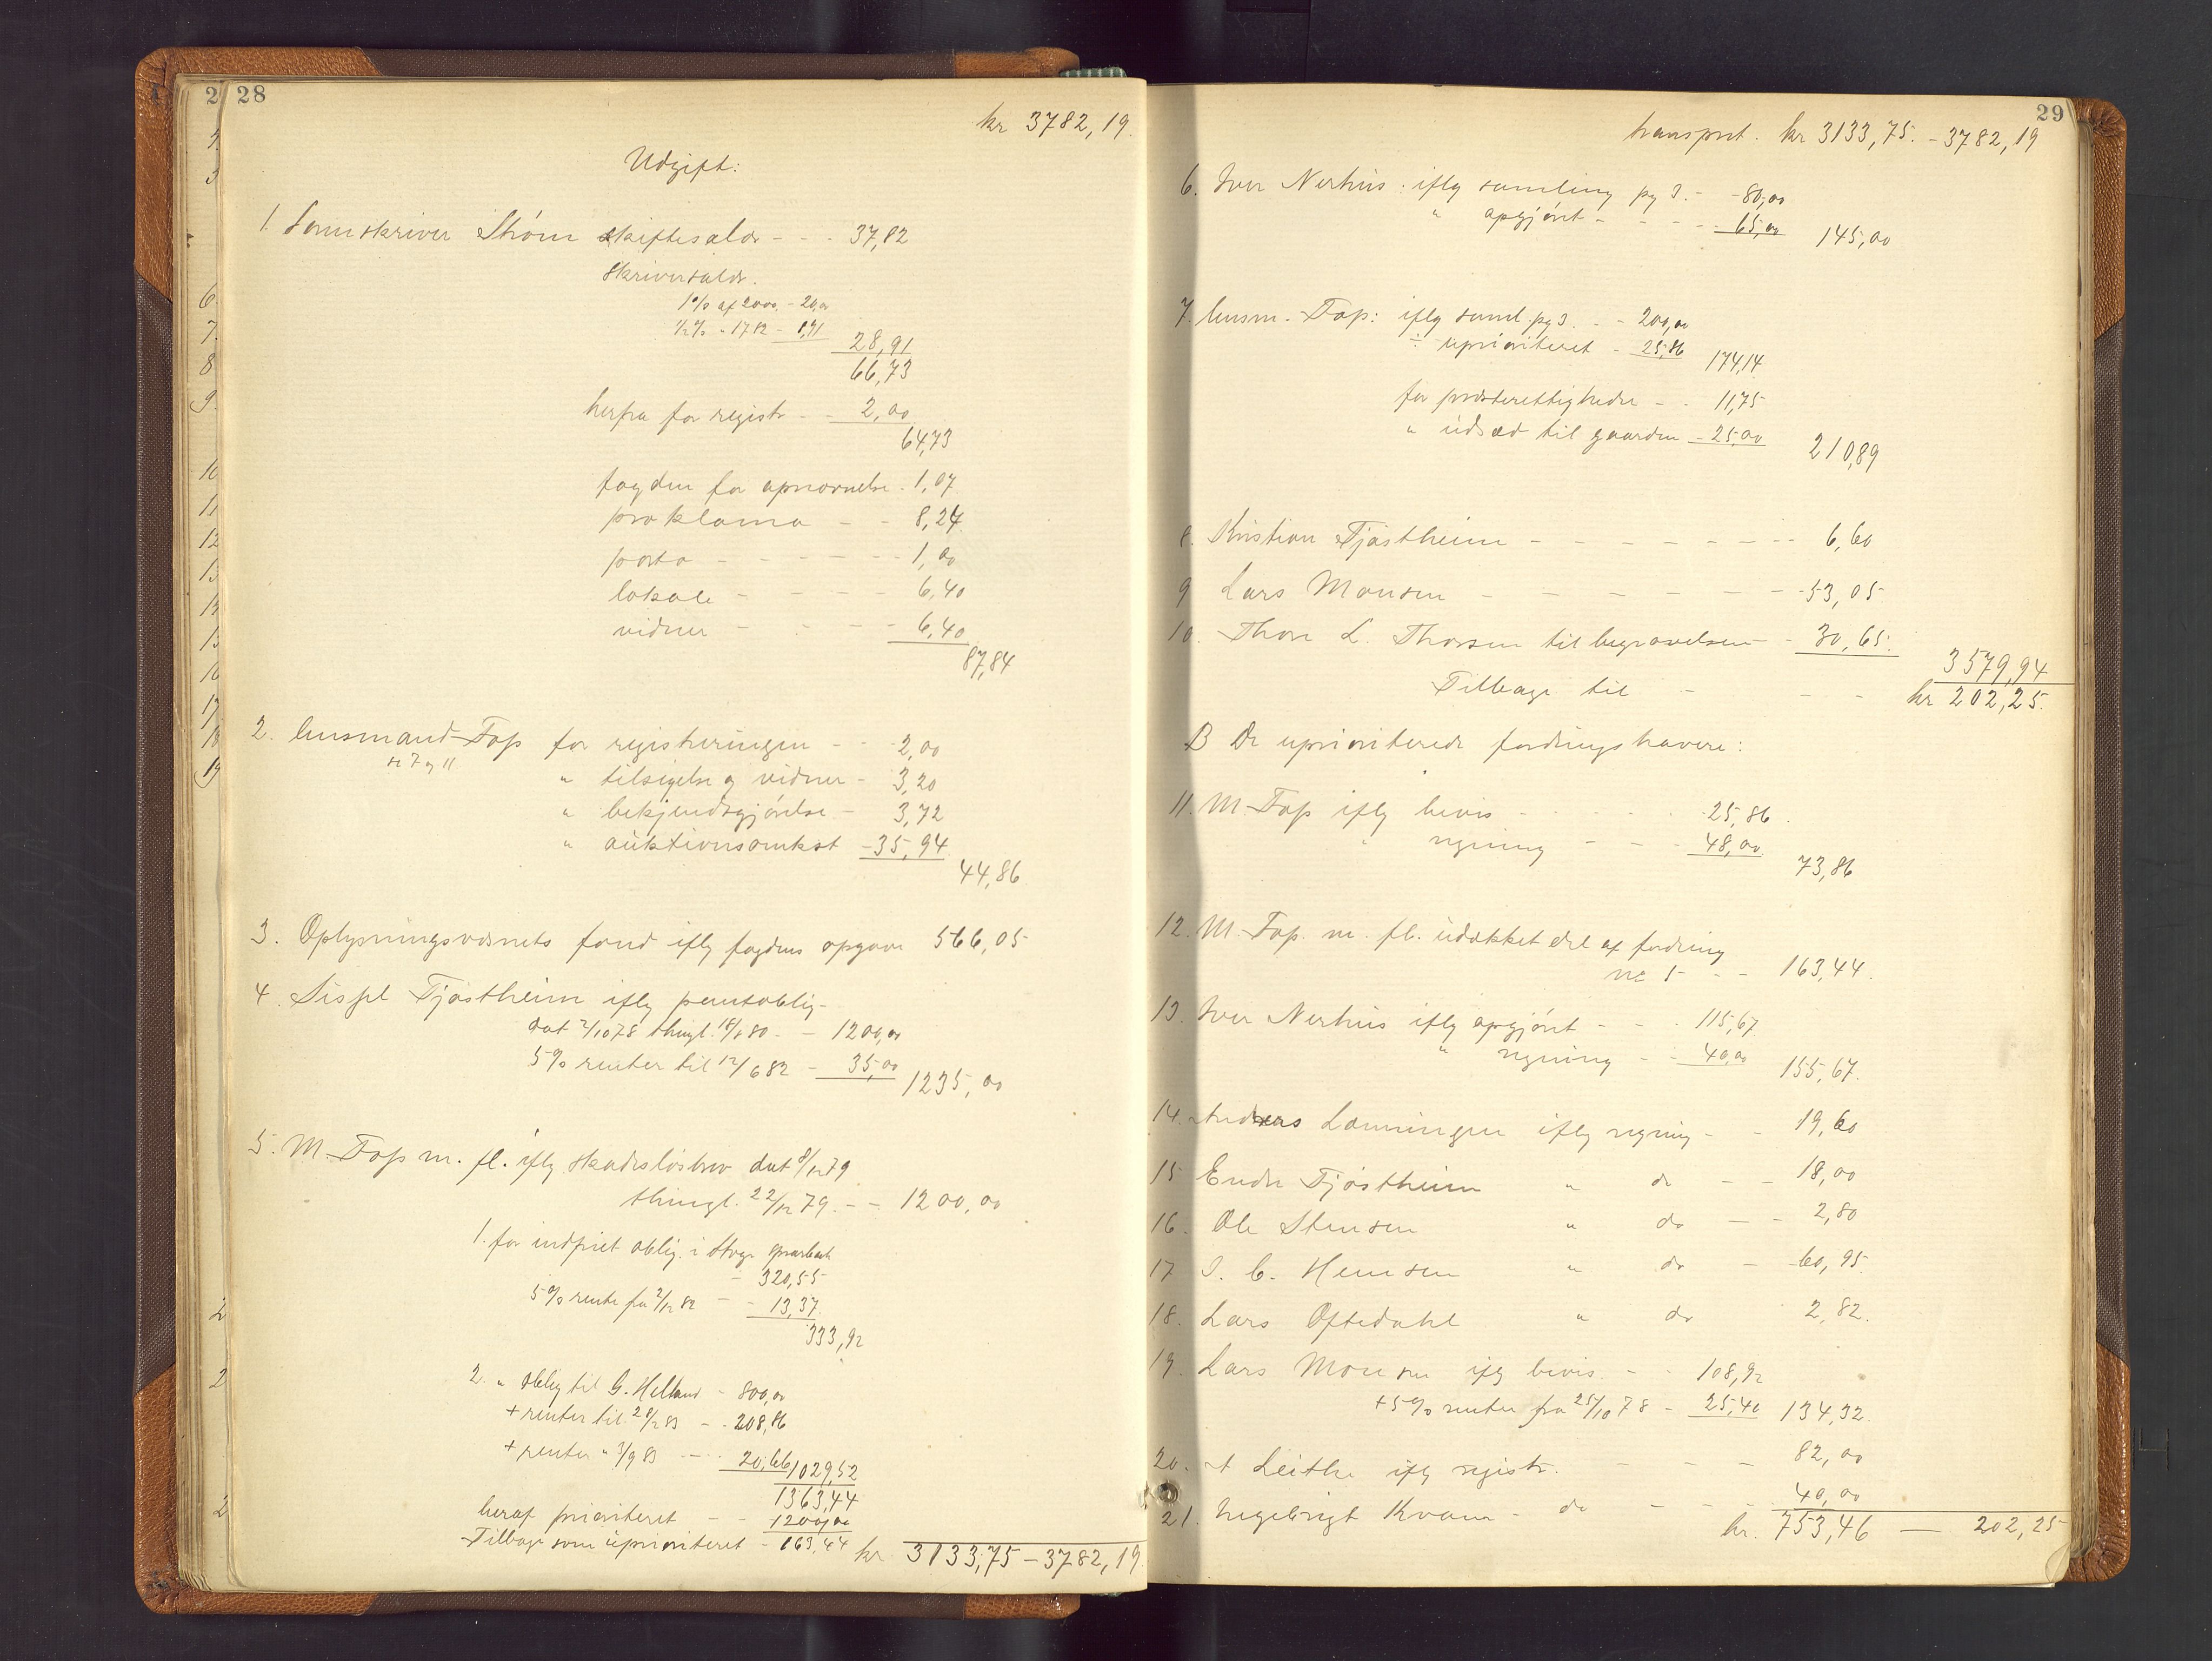 28
kr 3782,19.
Udgift:
1. Sorenskriver Strøm skiftesaldr - - - 37,82
Skriversaldr.
1% af 2000 - 20,00
1/2 % " 1782 - 8,91
28,91
66,73
herfra for registr - - 2,00
64,73
fogden for opnævnelse - 1,07
proklama - - 8,24
porto - - - - - 1,00
lokale - - - - 6,40
vidner - - - - 6,40
87,84
2. Lensmand Fop for registreringen - - 2,00
se 7 og 11
" tilsigelse og vidner - 3,20
" bekjendtgjørelse - 3,72
" auktionsomkst - 35,94
44,86
3. Oplysningsvæsnets fond ifly fogdens opgave 566,05
4. Sissel Tjøstheim ifly pantoblig-
dat 2/10 78 thingl. 18/6 80 - - 1200,00
5% renter til 12/6 82 - 35,00
1235,00
5. M. Fop m. fl. ifly skadesløsbrev dat 8/12 79
thingl. 22/12 79. - - 1200,00
1. for indfriet oblig. i Stvgr sparbank
- 320,55
5% rente fra 2/12 82 - - 13,37
333,92
2. " oblig til G. Helland - 800,00
+ renter til 28/2 83 - - 208,86
+ renter " 3/9 83 - - - 20,66 1029,52
1363,44
heraf prioriteret - - 1200,00
Tilbage som uprioriteret - 163,44 kr 3133,75 - 3782,19
29
transport. kr 3133,75. - 3782,19
6. Iver Nerhus: ifly samling pg 3. - - 80,00
" opgjørt - - - - 65,00 145,00
7. lensm. Fop: ifly saml. pg 3. - - 200,00
÷ uprioriteret - 25,86 174,14
for præsterettigheder - - 11,75
" udsæd til gaarden - 25,00 210,89
8. Kristian Tjøstheim - - - - - - - - 6,60
9 Lars Monsen - - - - - - - 53,05
10. Thore L. Thorsen til begravelsen - 30,65.
3579,94
Tilbage til - - - kr 202,25.
B De uprioriterede fordringshavere:
11. M. Fop ifly bevis - - - - - 25,86
" regning - - - 48,00 73,86
12. M. Fop. m. fl. udækket del af fordring
no 5 - - 163,44.
13. Iver Nerhus ifly opgjørt - - - 115,67
" regning - - 40,00 155,67.
14. Andreas Lønningen ifly regning - - 19,60
15 Endre Tjøstheim " do - - 18,00
16. Ole Stensen " do - - 2,80
17 I. C. Hemsen " do - 60,95.
18. Lars Oftedahl " do 2,82.
19. Lars Monsen ifly bevis - - 108,92
+ 5% renter fra 25/10 78 - 25,40 134,32.
20. A Leithe ifly registr. - - - 82,00
21. Ingebrigt Kvam - do - - - 40,00
kr. 753,46 — 202,25